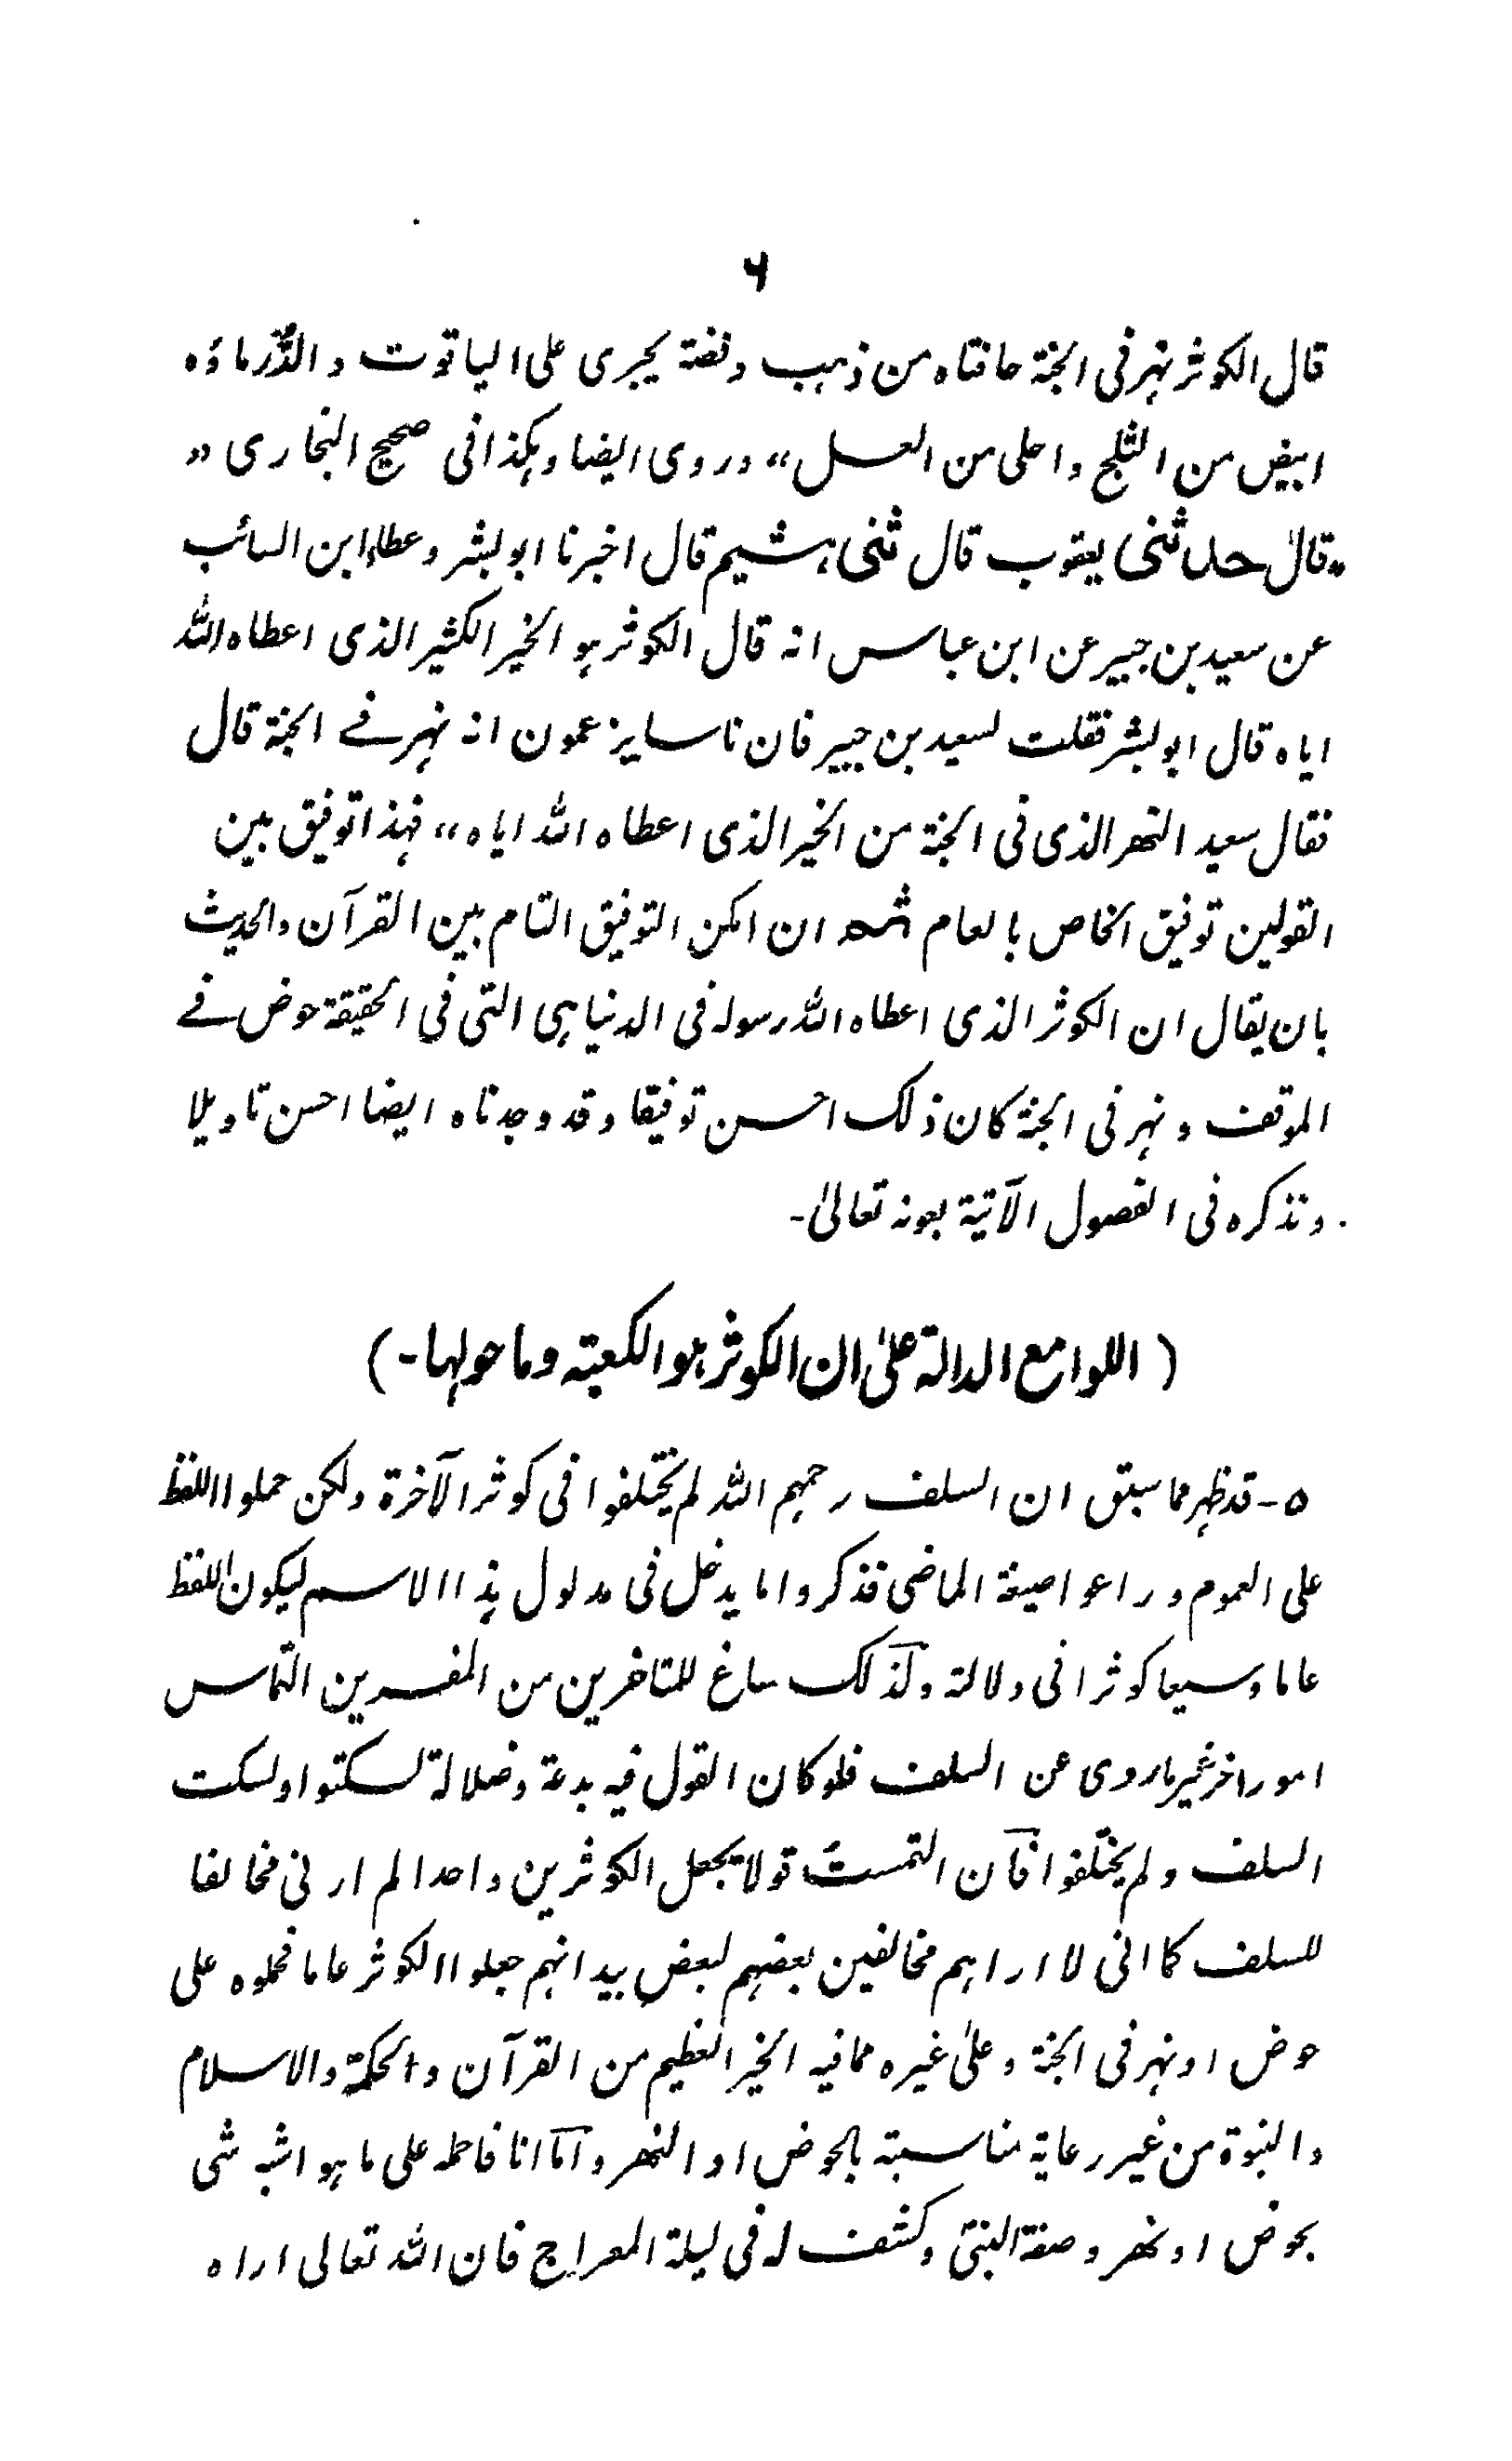 ۶
قال الکوثر نہر فی الجنۃ حافتاہ من ذہب وفضۃ یجری علی الیاقوت والدُّر ماؤہ
ابیض من الثلج واحلی من العسل،، وروی ایضا وہکذا فی صحیح البخاری ،،
قال حدثنی یعقوب قال ثنی ہشیم قال اخبرنا ابو بشر وعطاء ابن السائب
عن سعید بن جبیر عن ابن عباس انہ قال الکوثر ہو الخیر الکثیر الذی اعطاہ اللہ
ایاہ قال ابو بشر فقلت لسعید بن جبیر فان ناسا یزعمون انہ نہر فے الجنۃ قال
فقال سعید النھر الذی فی الجنۃ من الخیر الذی اعطاہ اللہ ایاہ،، فہذا توفیق بین
القولین توفیق الخاص بالعام ثم ان امکن التوفیق التام بین القرآن والحدیث
بان یقال ان الکوثر الذی اعطاہ اللہ رسولہ فی الدنیا ہی التی فی الحقیقۃ حوض فے
الموقف ونہر فی الجنۃ کان ذلک احسن توفیقا وقد وجدناہ ایضا احسن تاویلا
ونذکرہ فی الفصول الآتیۃ بعونہ تعالیٰ۔
( اللوامع الدالۃ علیٰ ان الکوثر ہو الکعبتہ وما حولہا۔ )
۵۔ قد ظہر مما سبق ان السلف رحمہم اللہ لم یختلفوا فی کوثر الآخرۃ ولکن حملوا اللفظ
علی العموم وراعوا صیغۃ الماضی فذکروا ما یدخل فی مدلول ہذا الاسم لیکون اللفظ
عاما وسیعا کوثرا فی دلالتہ ولذٰلک ساغ للمتاخرین من المفسرین التماس
امور اخر غیر ما روی عن السلف فلو کان القول فیہ بدعۃ وضلالۃ لسکتوا ولسکت
السلف ولم یختلفوا فان التمستُ قولا یجعل الکوثرین واحدا لم ارنی مخالفا
للسلف کما انی لا اراہم مخالفین بعضہم لبعضٍ بید انہم جعلوا الکوثر عاما فحملوہ علی
حوض او نہر فی الجنۃ وعلیٰ غیرہ مما فیہ الخیر العظیم من القرآن والحکمۃ والاسلام
والنبوۃ من غیر رعایۃ مناسبتہ بالحوض او النھر واما انا فاحملہ علی ما ہو اشبہ شی
بحوض او نھر وصفۃ النبیؐ وکشف لہ فی لیلۃ المعراج فان اللہ تعالی اراہ